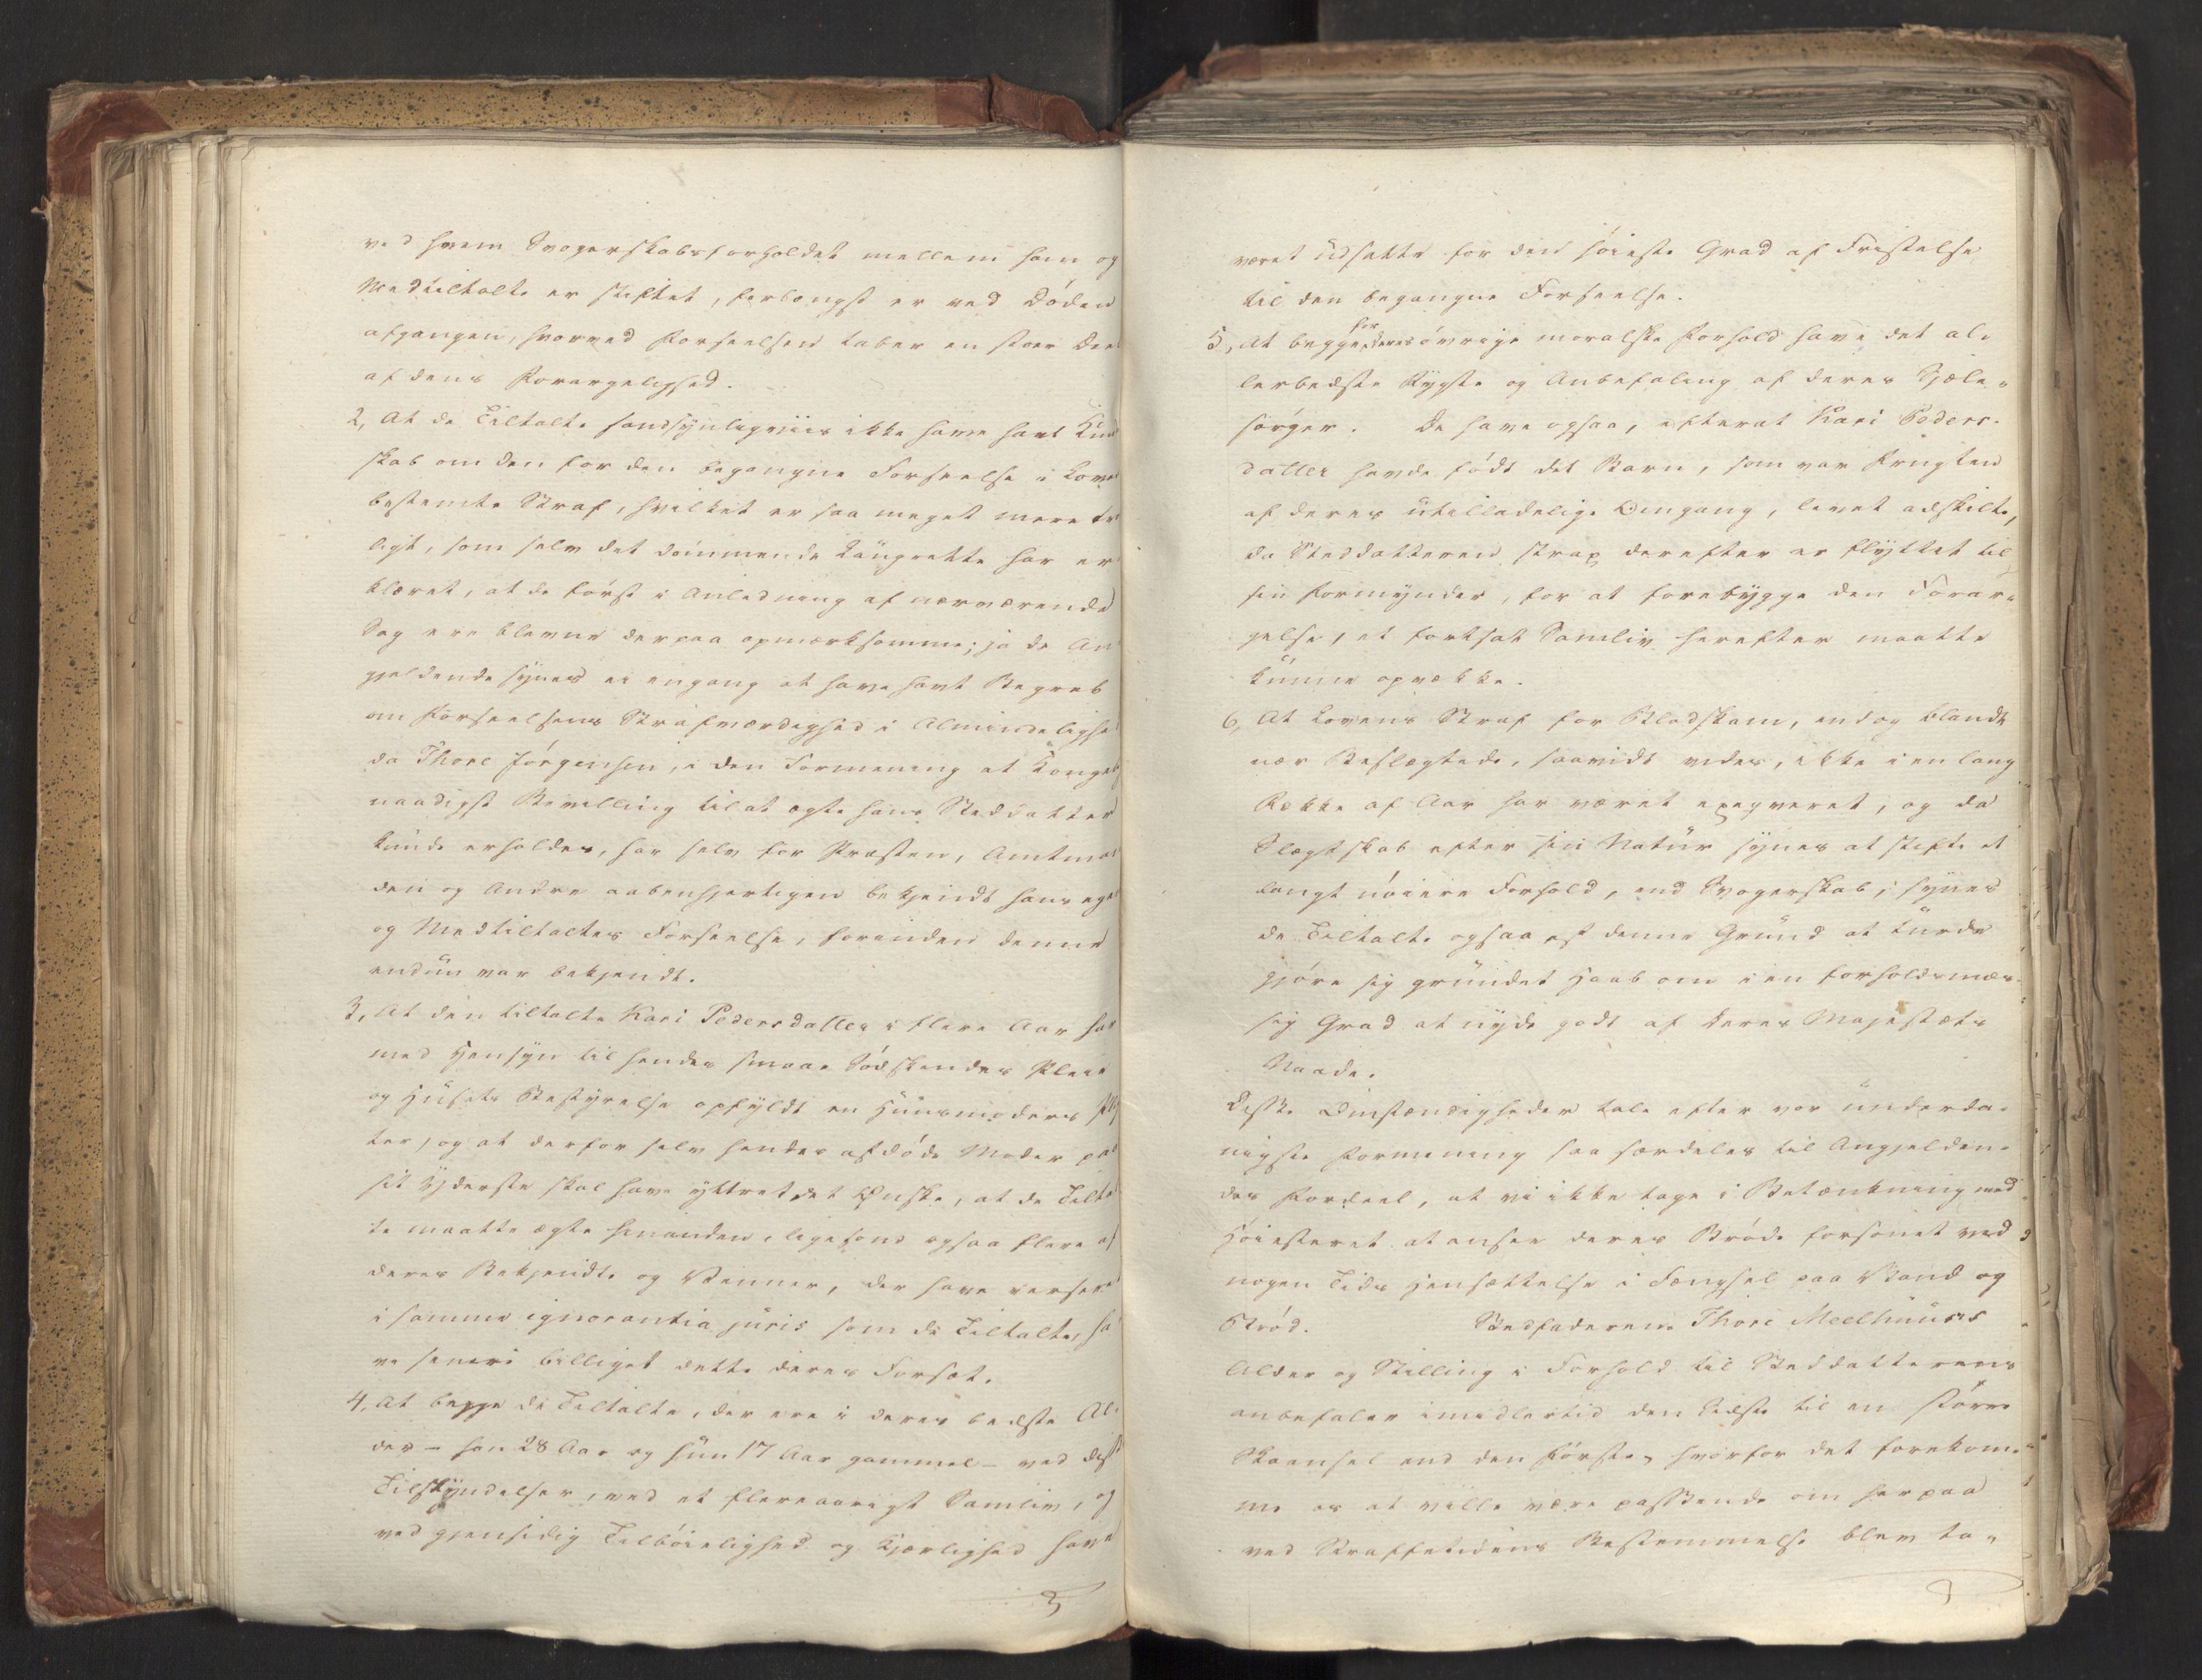 ved hvem Svogerskabsforholdet mellem ham og
Medtiltalte er stiftet, forlængst er ved Døden
afgangen, hvorved Forseelsen taber en stor Deel
af dens Forargelighed.
2, At de Tiltalte sandsynligviis ikke have havt Kund
skab om den for den begangne Forseelse i Loven
bestemte Straf, hvilket er saa meget mere tro
ligt, som selv det dømmende Laugrette har er
klæret, at de først i Anledning af nærværende
Sag ere blevne derpaa opmærksomme; ja de An
gjeldende synes ei engang at have havt Begreb
om Forseelsens Strafværdighed i Almindelighed
da Thore Jørgensen, i den Formening at Kongelig
naadigst Bevilling til at ægte hans Steddatter
kunde erholdes, har selv for Præsten, Amtman
den og Andre aabenhjertigen bekjendt hans egen
og Medtiltaltes Forseelse, forinden denne
endnu var bekjendt.
3, At den tiltalte Kari Pedersdatter i flere Aar har
med Hensyn til hendes smaae Sødskendes Pleie
og Husets Bestyrelse opfyldt en Huusmoders Plig
ter, og at derfor selv hendes afdøde Moder paa
sit Yderste skal have yttret det Ønske, at de Tiltal
te maatte ægte hinanden, ligesom ogsaa flere af
deres Bekjendte og Venner, der have verseret
i samme ignorantia juris som de Tiltalte, ha
ve senere billiget dette deres Forsæt.
4, At begge de Tiltalte, der ere i deres bedste Al-
der – han 28 Aar og hun 17 Aar gammel – ved disse
Tilskyndelser, ved et fleeraarigt Samliv, og
ved gjensidig Tilbøielighed og Kjærlighed have
været udsatte for den høieste Grad af Fristelse
til den begangne Forseelse.
5, At begge for deres øvrige moralske Forhold have det al-
lerbedste Rygte og Anbefaling af deres Sjæle-
sørger. De have ogsaa, efterat Kari Peders-
datter havde født det Barn, som var Frugten
af deres utilladelige Omgang, levet adskilte,
da Steddatteren strax derefter er flyttet til
sin Formynder, for at forebygge den Forar-
gelse, et fortsat Samliv herefter maatte
kunne opvække.
6, At Lovens Straf for Blodskam, endog blandt
nær Beslægtede, saavidt vides, ikke i en lang
Række af Aar har været exeqveret, og da
Slægtskab efter sin Natur synes at stifte et
langt nøiere Forhold, end Svogerskab, synes
de Tiltalte ogsaa af denne Grund at turde
gjøre sig grundet Haab om i en forholdsmæs-
sig Grad at nyde godt af Deres Majestæts
Naade.
Disse Omstændigheder tale efter vor underda-
nigste Formening saa særdeles til Angjelden-
des Fordeel, at vi ikke tage i Betænkning med
Høiesteret at ansee deres Brøde forsonet ved
nogen Tids Hensættelse i Fængsel paa Vand og
Brød. Stedfaderens Thore Meelhuuses
Alder og Stilling i Forhold til Steddatterens
anbefaler imidlertid den Sidste til en større
Skaansel end den Første, hvorfor det forekom-
me os at ville være passende om herpaa
ved Straffetidens Bestemmelse blev ta-